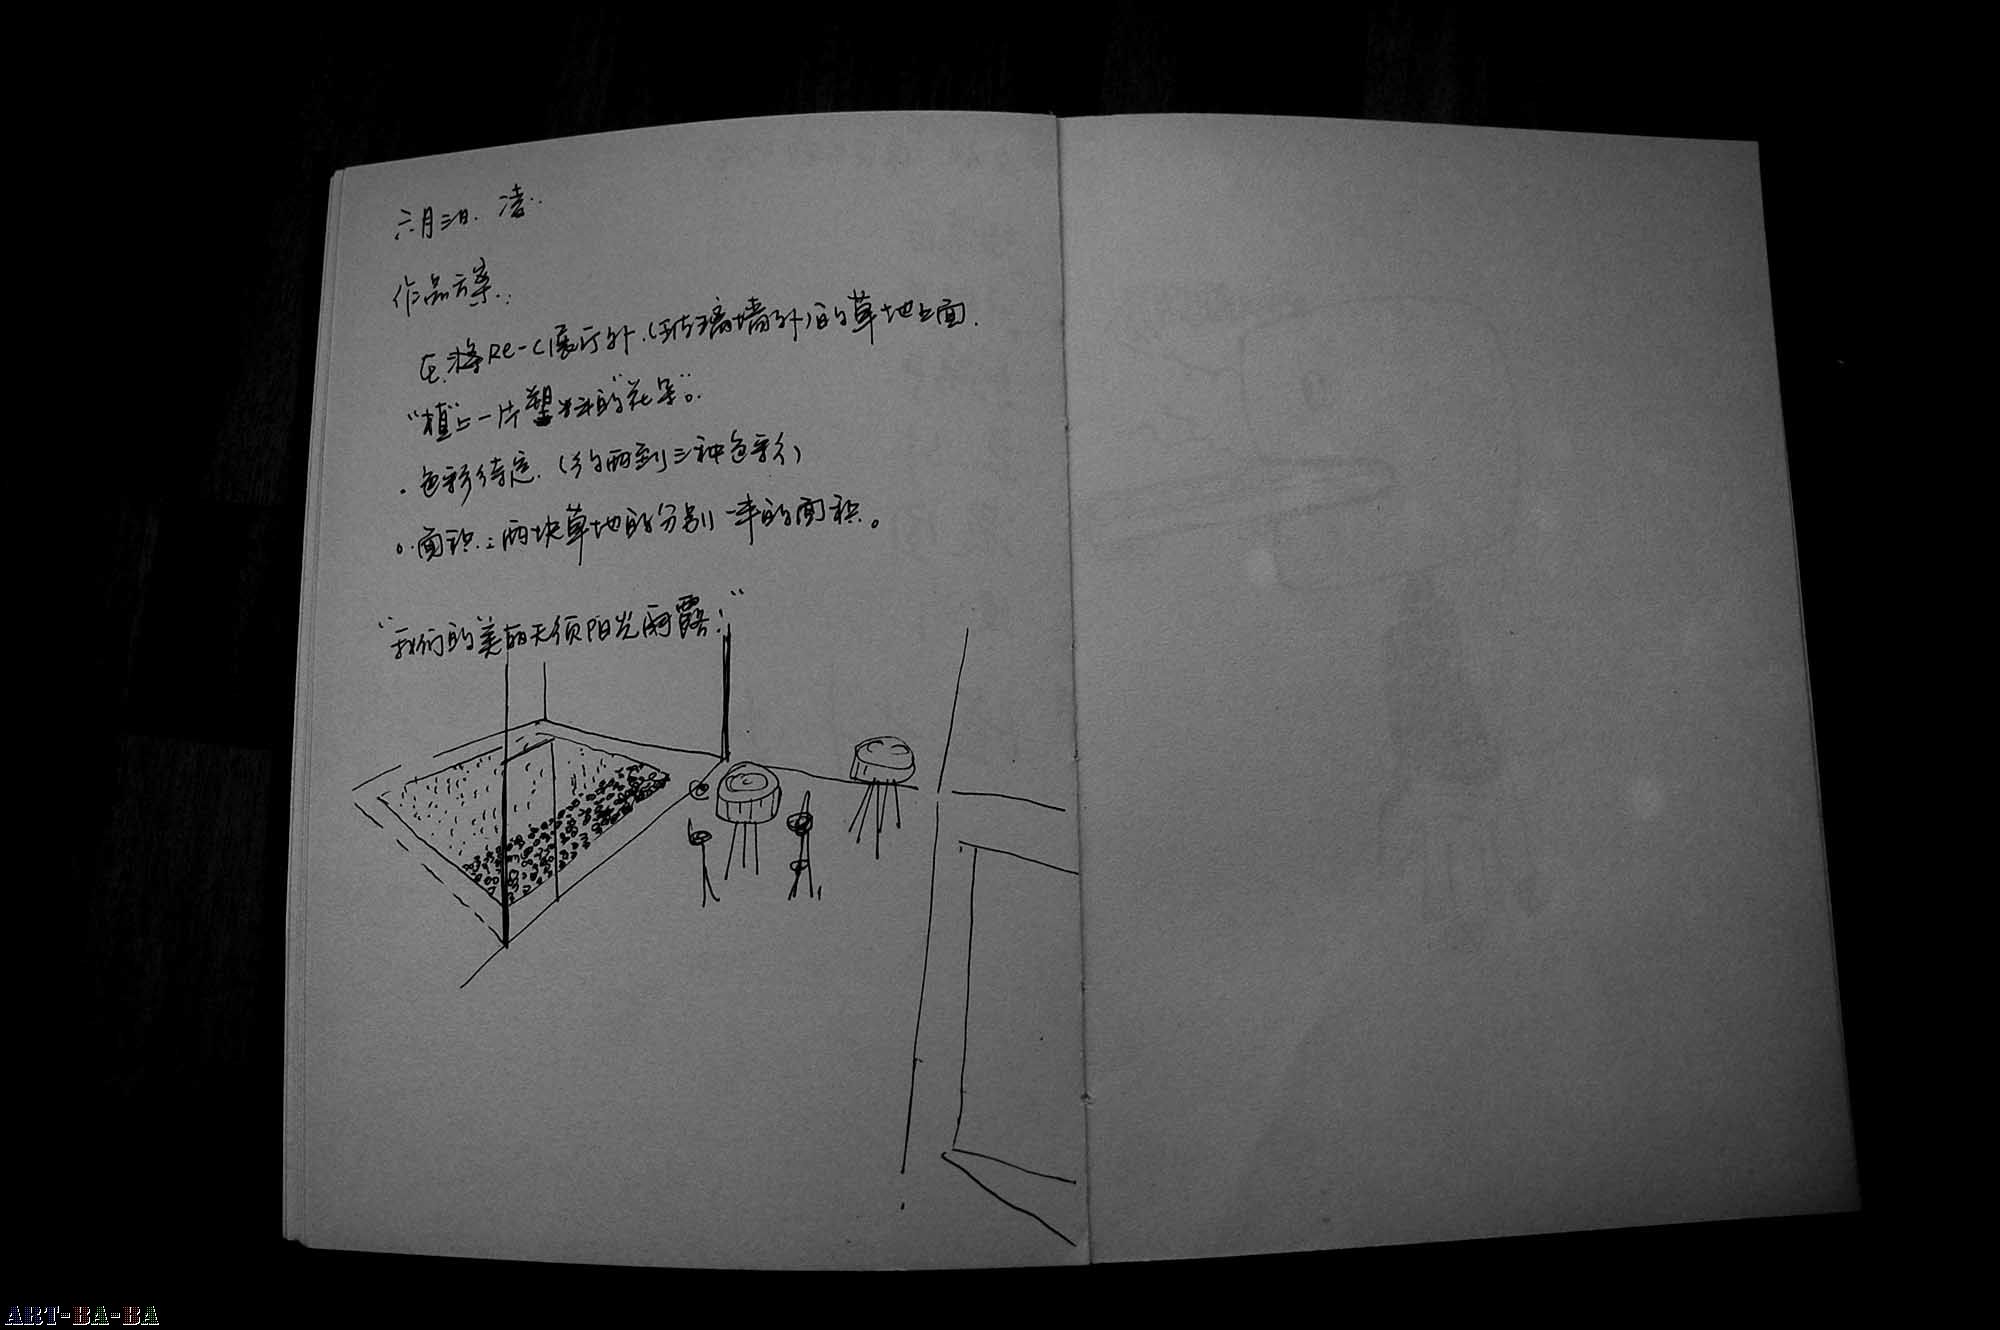 六月三日. 凌..
作品方案:
在将Re-C展厅外.(玻璃墙外)的草地上面.
"植"上一片塑料的"花朵"。
·色彩待定.(约两到三种色彩)
。面积:两块草地的分别一半的面积。
"我们的美丽无须阳光雨露!"
ART-BA-BA